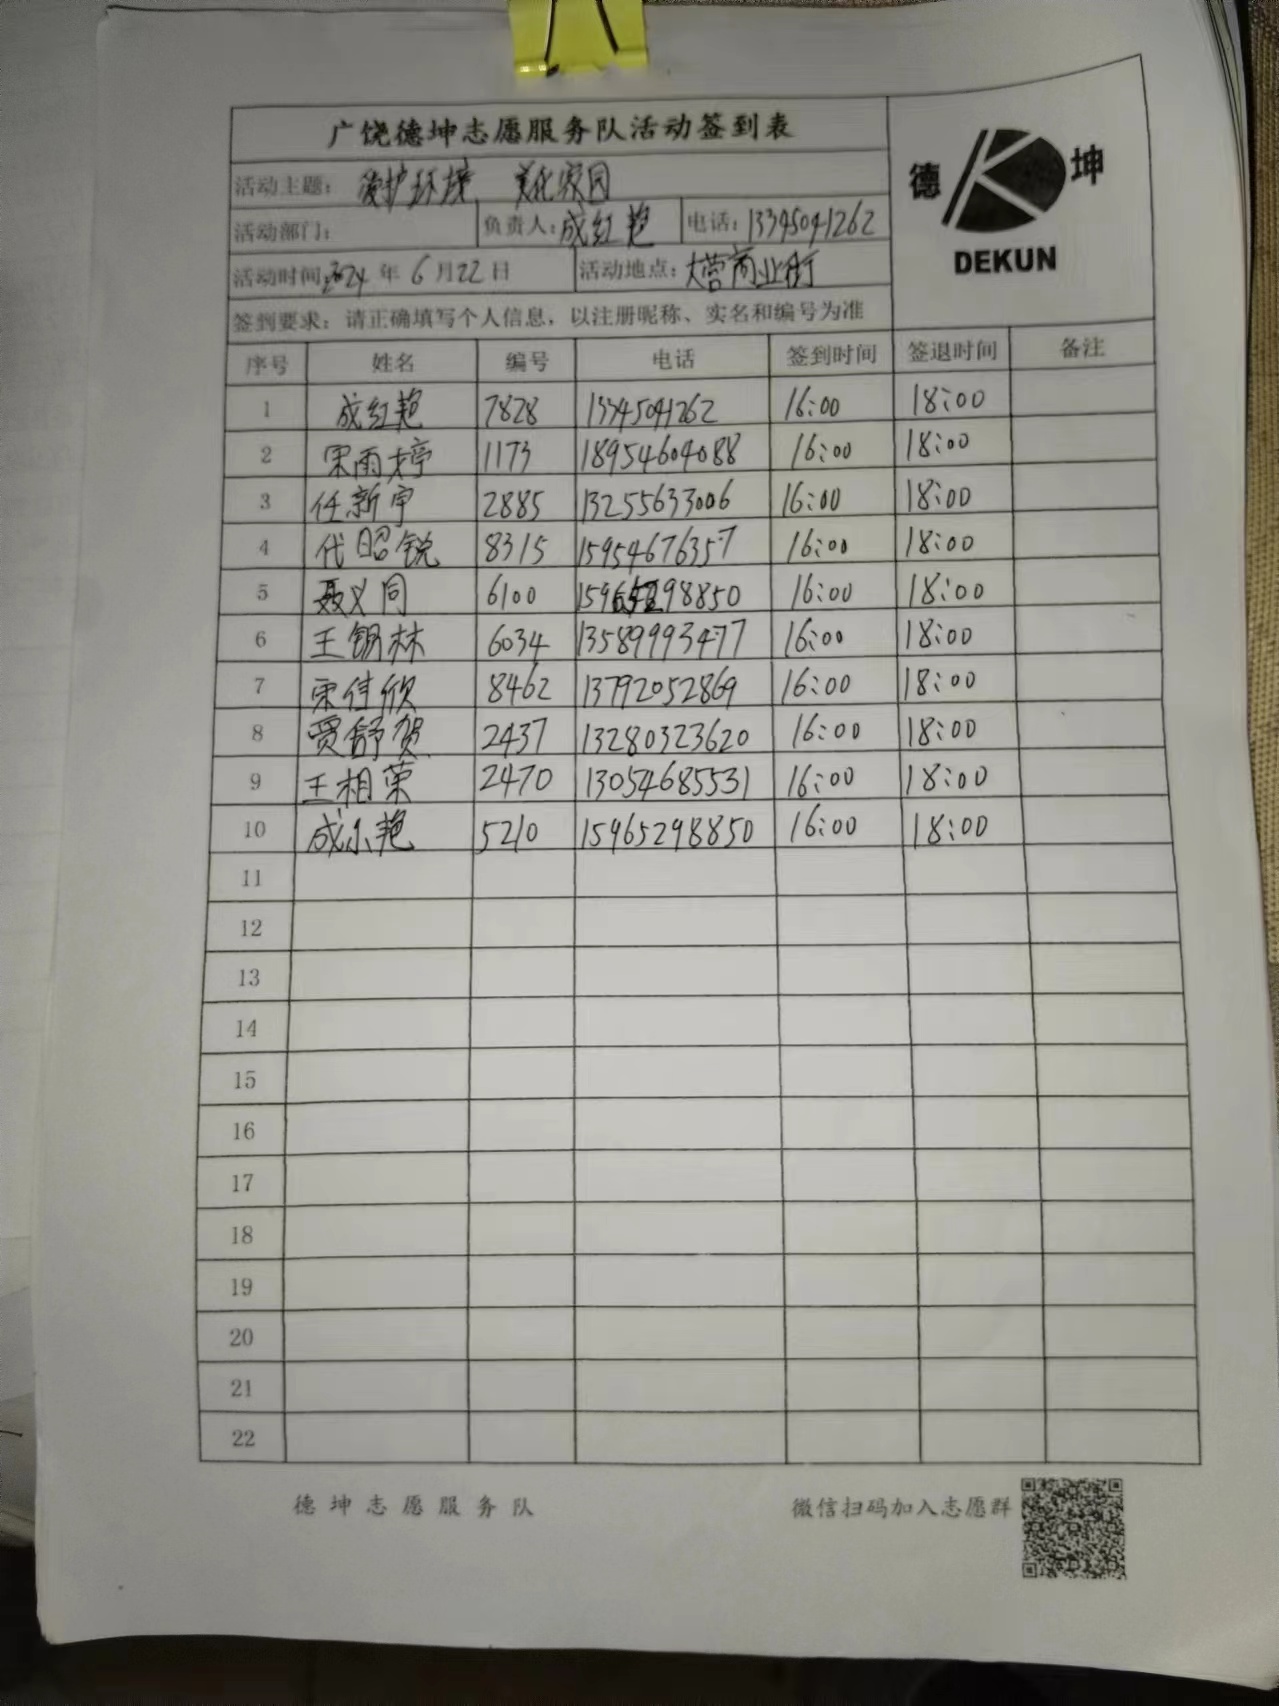 广饶德坤志愿服务队活动签到表
德 坤
DEKUN
活动主题: 爱护环境 美化家园
活动部门: 负责人: 成红艳 电话: 13345041262
活动时间 2024 年 6 月 22 日 活动地点: 大营商业街
签到要求: 请正确填写个人信息, 以注册昵称、实名和编号为准
序号 姓名 编号 电话 签到时间 签退时间 备注
1 成红艳 7828 13345041262 16:00 18:00
2 宋雨婷 1173 18954604088 16:00 18:00
3 任新宇 2885 13255633006 16:00 18:00
4 代昭锐 8315 15954676357 16:00 18:00
5 聂义同 6100 15965298850 16:00 18:00
6 王锡林 6034 13589993477 16:00 18:00
7 宋佳欣 8462 13792052869 16:00 18:00
8 贾舒贺 2437 13280323620 16:00 18:00
9 王相荣 2470 13054685531 16:00 18:00
10 成小艳 5210 15965298850 16:00 18:00
11
12
13
14
15
16
17
18
19
20
21
22
德坤志愿服务队 微信扫码加入志愿群